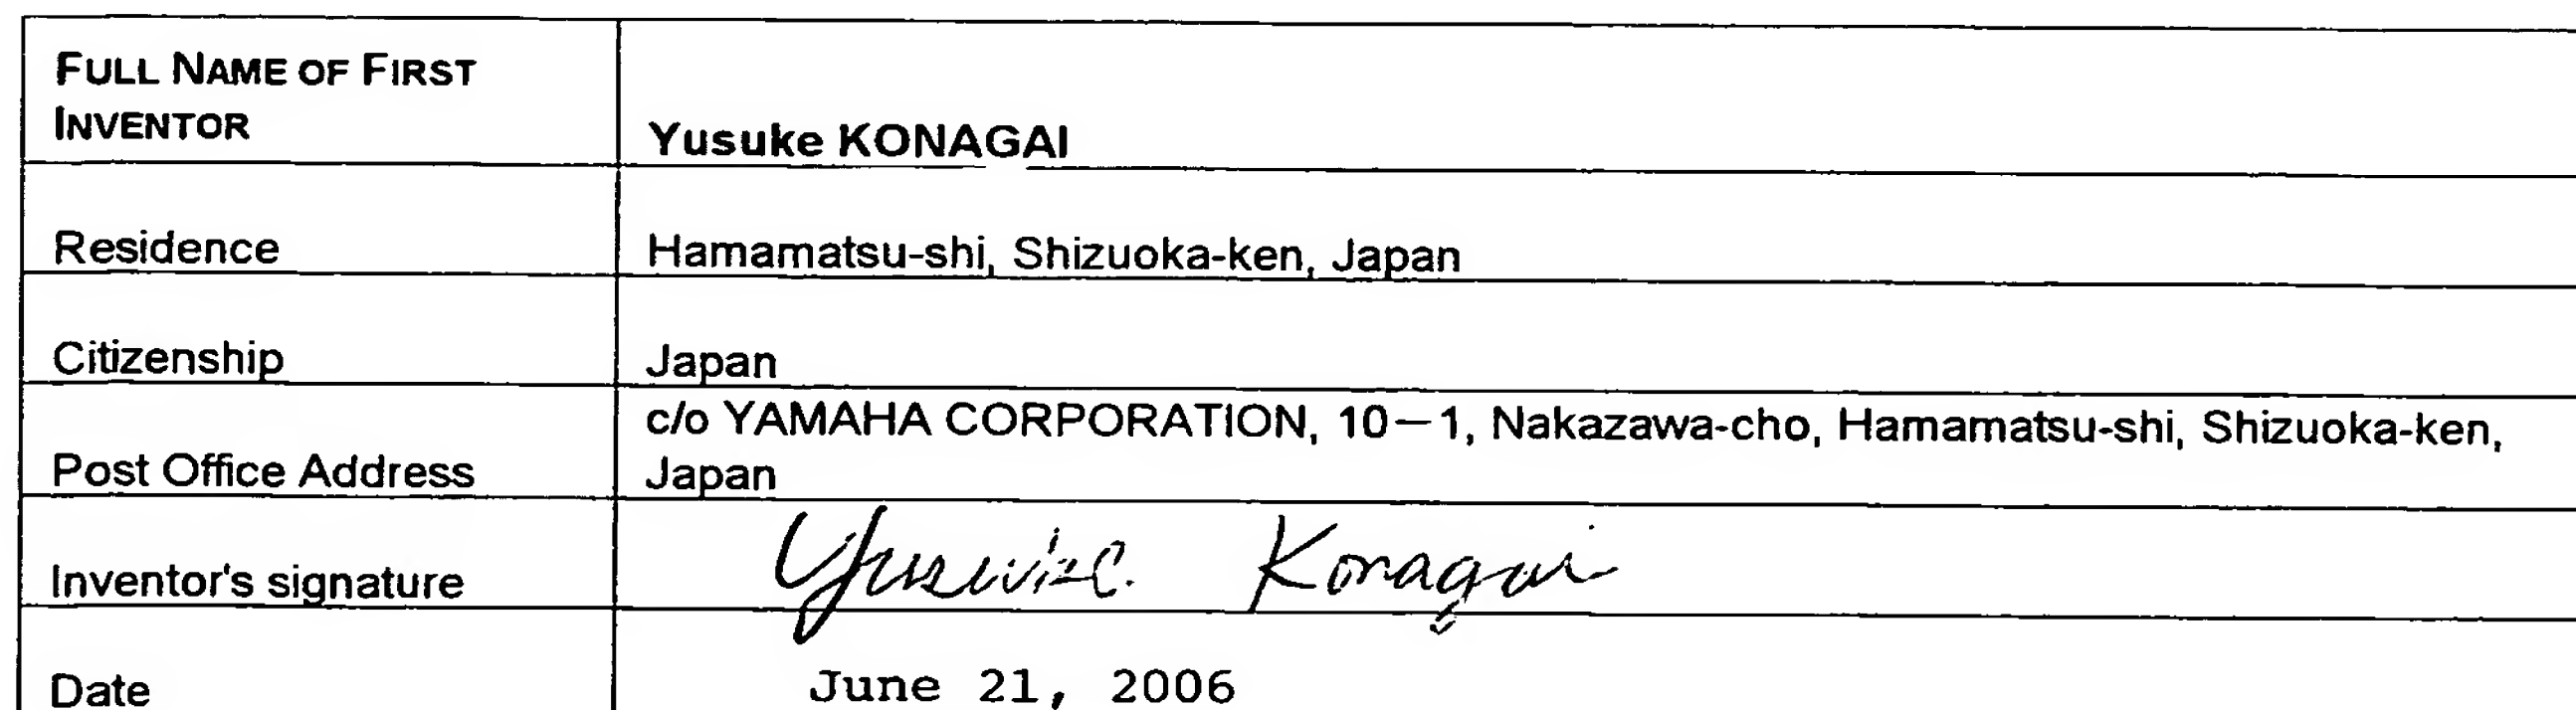 FULL NAME OF FIRST
INVENTOR
Yusuke KONAGAI
Residence
Hamamatsu-shi, Shizuoka-ken, Japan
Citizenship
Japan
Post Office Address
c/o YAMAHA CORPORATION, 10－1, Nakazawa-cho, Hamamatsu-shi, Shizuoka-ken,
Japan
Inventor's signature
Yusuke Konagai
Date
June 21, 2006